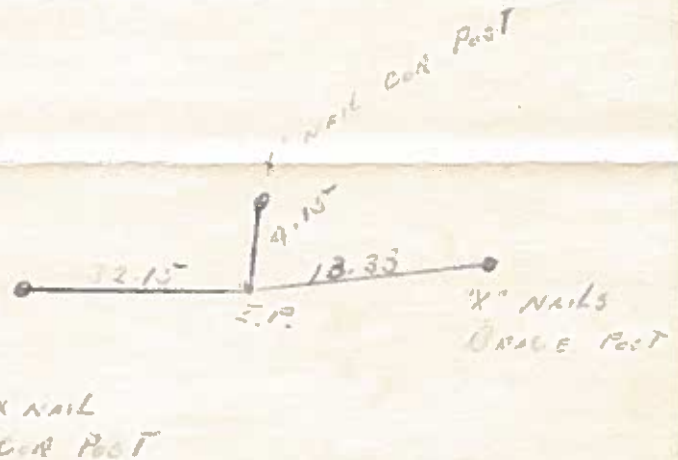 NAIL COR POST
4.15
32.15
18.35
I.P.
"X" NAILS
BRACE POST
X NAIL
COR POST